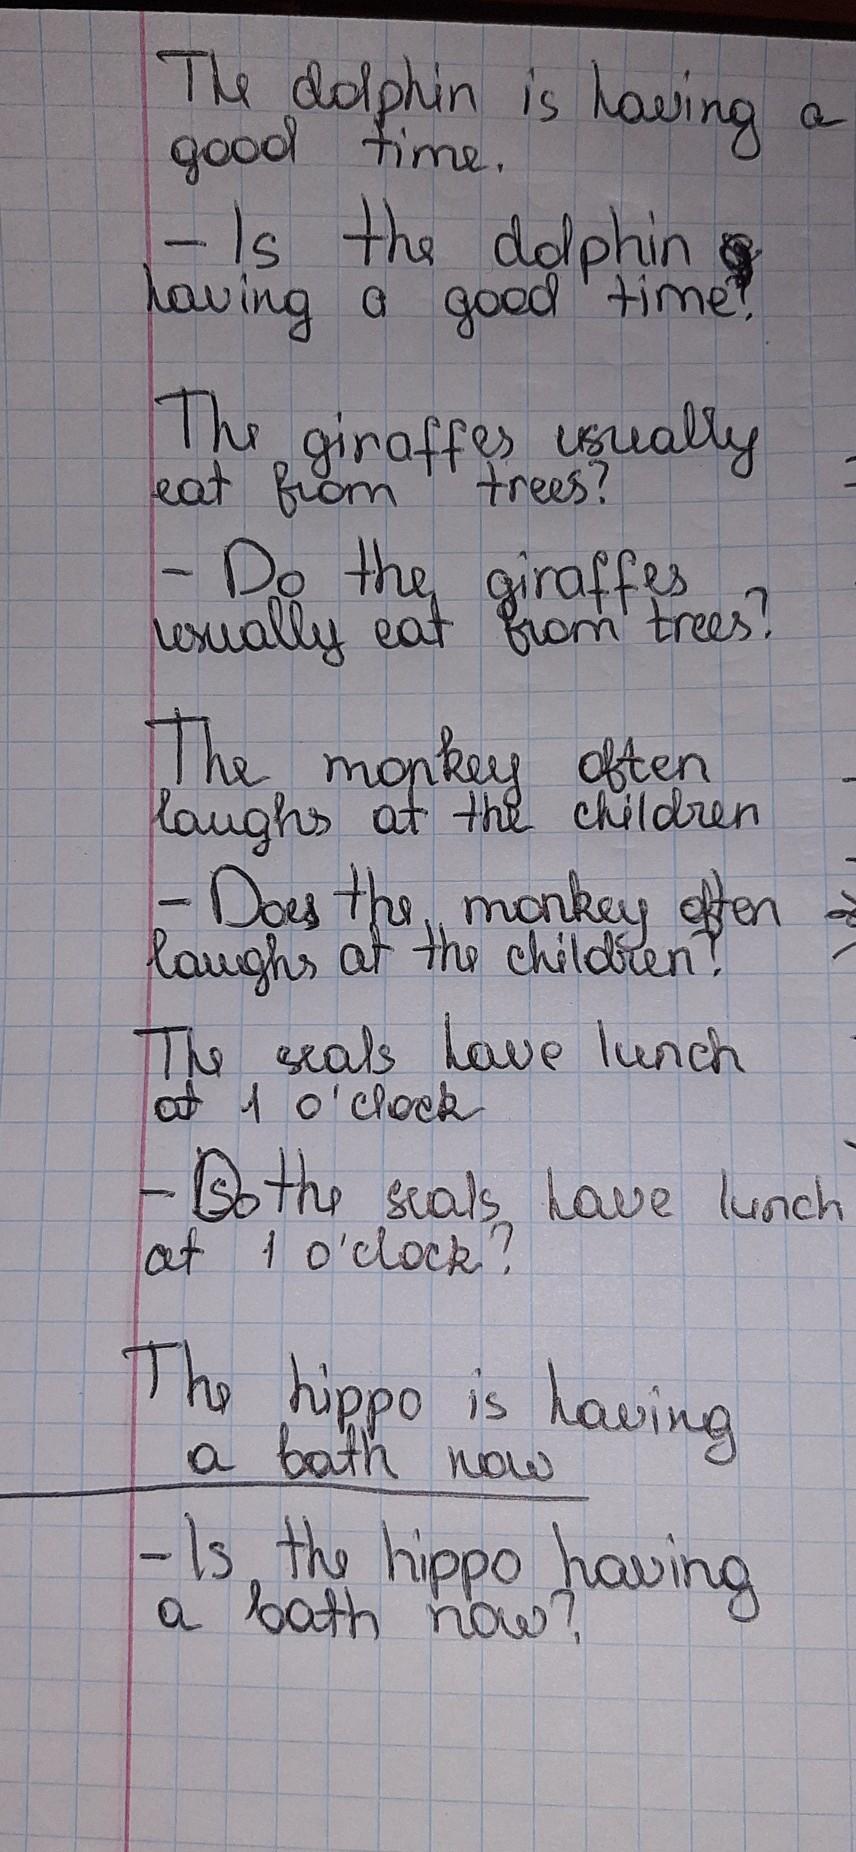 The dolphin is having a
good time.
- Is the dolphin
having a good time?
The giraffes usually
eat from trees?
- Do the giraffes
usually eat from trees?
The monkey often
laughs at the children
- Does the monkey often
laughs at the children?
The seals have lunch
at 1 o'clock
- Do the seals have lunch
at 1 o'clock?
The hippo is having
a bath now
- Is the hippo having
a bath now?